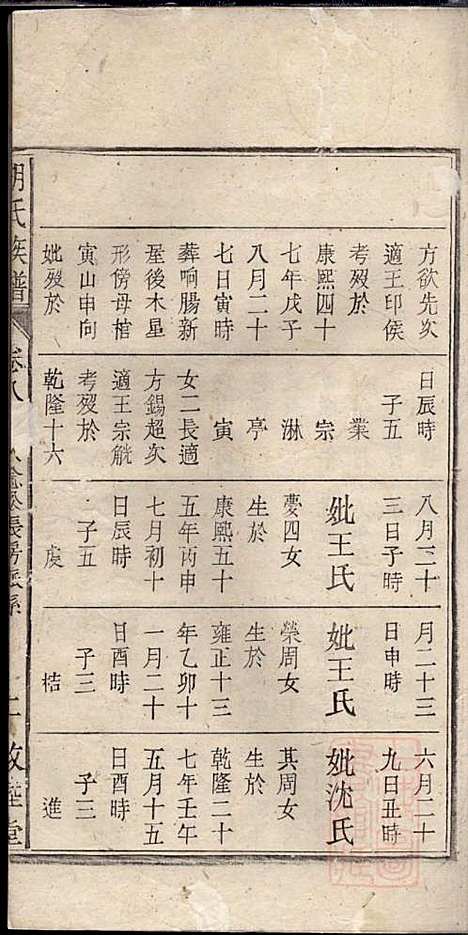 方欲先次
適王印侯
考歿於
康熙四十
七年戊子
八月二十
七日寅時
葬响腸新
屋後木星
形傍母棺
寅山申向
妣歿於
日辰時
子五
業
宗
淋
亭
寅
女二長適
方錫超次
適王宗觥
考歿於
乾隆十六
八月二十
三日子時
妣王氏
夢四女
生於
康熙五十
五年丙申
七月初十
日辰時
子五
虔
月二十三
日申時
妣王氏
榮周女
生於
雍正十三
年乙卯十
一月二十
日酉時
子三
桔
六月二十
九日丑時
妣沈氏
其周女
生於
乾隆二十
七年壬午
五月十五
日酉時
子三
進
胡氏族譜
卷八
長房
敦睦堂